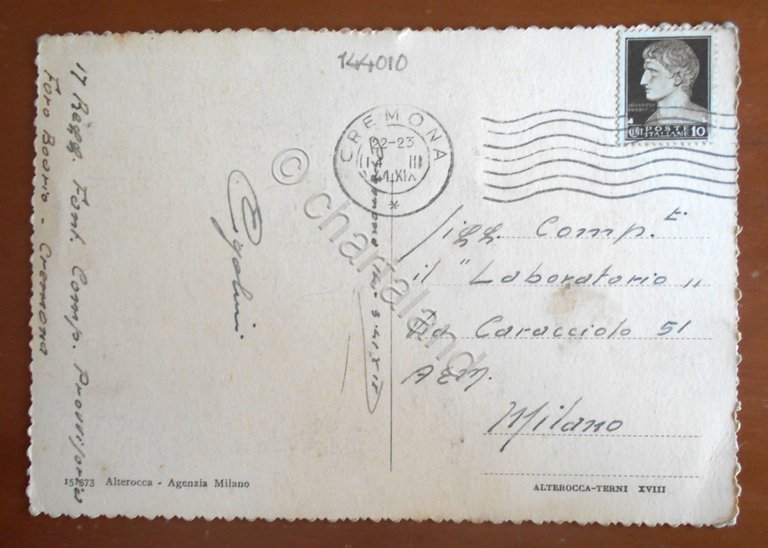 144010
CREMONA
22-23
III
XIX
POSTE
ITALIANE
CENT
10
Sigg. Comp.ti
il "Laboratorio"
Via Caracciolo 51
Milano
Cremona
17 Regg. Fant. Comp. Provvisoria
Foro Boario - Cremona
151873 Alterocca - Agenzia Milano
ALTEROCCA-TERNI XVIII
© chartaland